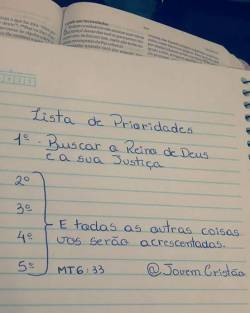 Lista de Prioridades
1º - Buscar o Reino de Deus
e a sua Justiça
2º
3º
4º
5º
E todas as outras coisas
vos serão acrescentadas.
MT 6:33
@JovemCristão